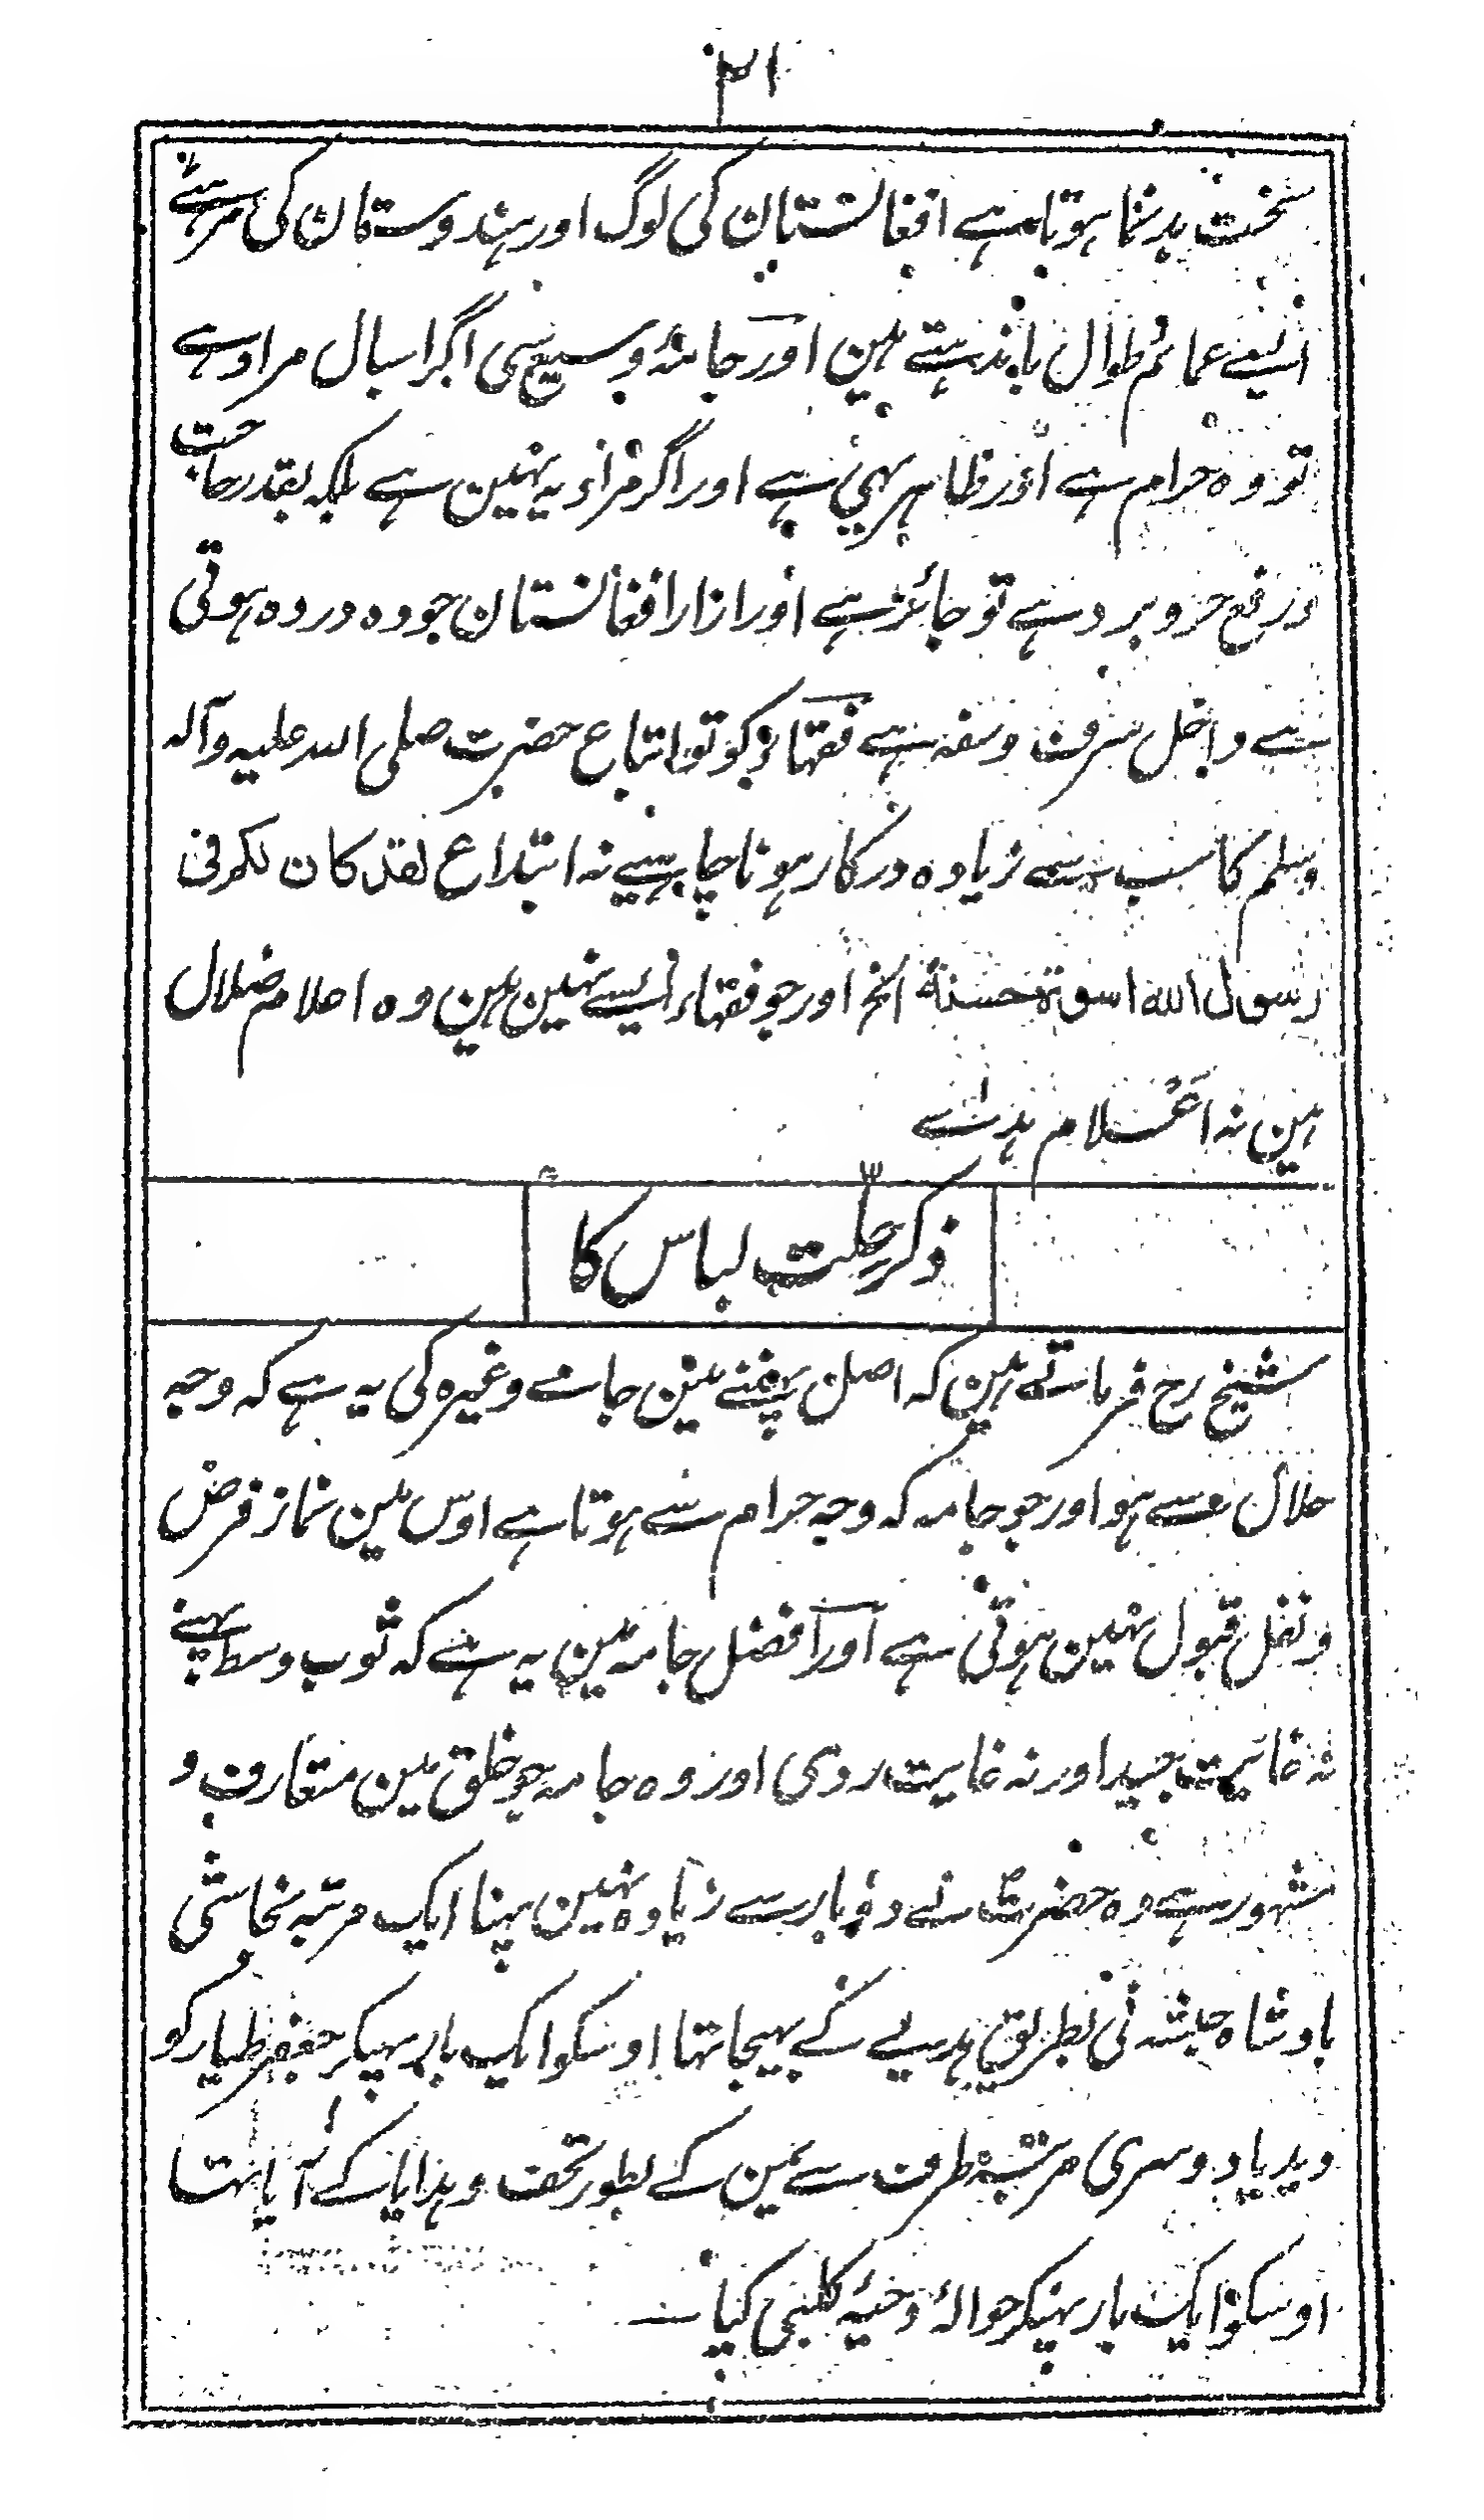 ۲۱
سخت بدنما ہوتا ہے افغانستان کی لوگ اور ہندوستان کی مرہٹے
ایسے عمائم طوال باندہتے ہین اور جامۂ وسیع سی اگر اسبال مراد ہے
تو وہ حرام ہے اور ظاہر یہی ہے اور اگر مراد یہ نہین ہے بلکہ بقدر حاجت
و رفع حر و برد ہے تو جائز ہے اور ازار افغانستان جو وہ در وہ ہوتی
ہے داخل سرف و سفہ ہے فقہا کو تو اتباع حضرت صلی اللہ علیہ وآلہ
وسلم کا سب سے زیادہ درکار ہونا چاہیے نہ ابتداع لقد کان لکم فی
رسول اللہ اسوۃ حسنۃ الخ اور جو فقہاء ایسے نہین ہین وہ احلام ضلال
ہین نہ اعلام ہدے
ذکر حلت لباس کا
شیخ رح فرماتے ہین کہ اصل پہننے مین جامے وغیرہ کی یہ ہے کہ وجہ
حلال سے ہو اور جو جامہ کہ وجہ حرام سے ہوتا ہے اوس مین نماز فرض
و نفل قبول نہین ہوتی ہے اور افضل جامہ مین یہ ہے کہ ثوب وسط پہنے
نہ غایت جید اور نہ غایت ردی اور وہ جامہ جو خلق مین متعارف و
مشہور ہے وہ حضرت نے دو بار سے زیادہ نہین پہنا ایک مرتبہ نجاشی
بادشاہ حبشہ نی بطریق ہدیے کے بہیجا تہا اوسکو ایک بار پہنکر جعفر طیار کو
دیدیا دوسری مرتبہ طرف سے یمن کے بطور تحف و ہدایا کے آیا تہا
اوسکو ایک بار پہنکر حوالۂ دحیۂ کلبی کیا